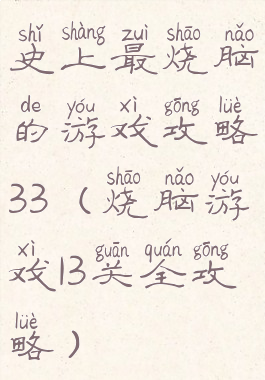 shǐ shàng zuì shāo nǎo
史上最烧脑
de yóu xì gōng lüè
的游戏攻略
shāo nǎo yóu
33（烧脑游
xì guān quán gōng
戏13关全攻
lüè
略）